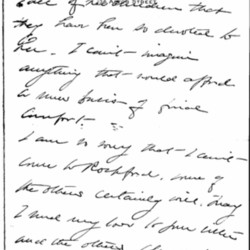 of her children that
they have been so devoted to
her. I can't imagine
anything that would afford
a more basis of final
comfort.
I am so sorry that I can't
come to Rockford. Some of
the others certainly will. May
I send my love to your
and the others